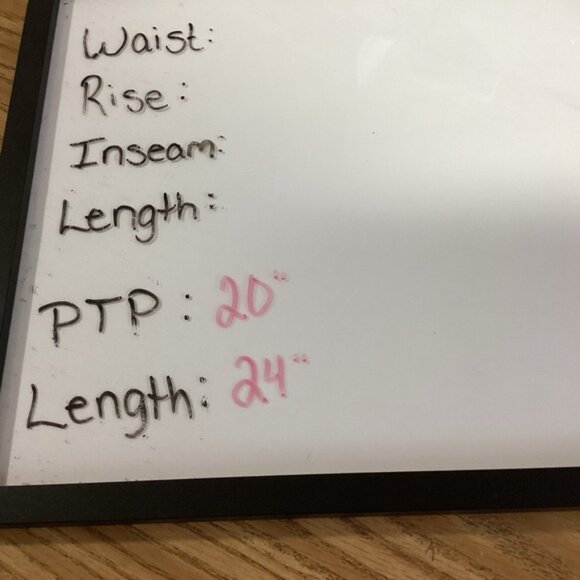 Waist:
Rise:
Inseam:
Length:
PTP: 20"
Length: 24"